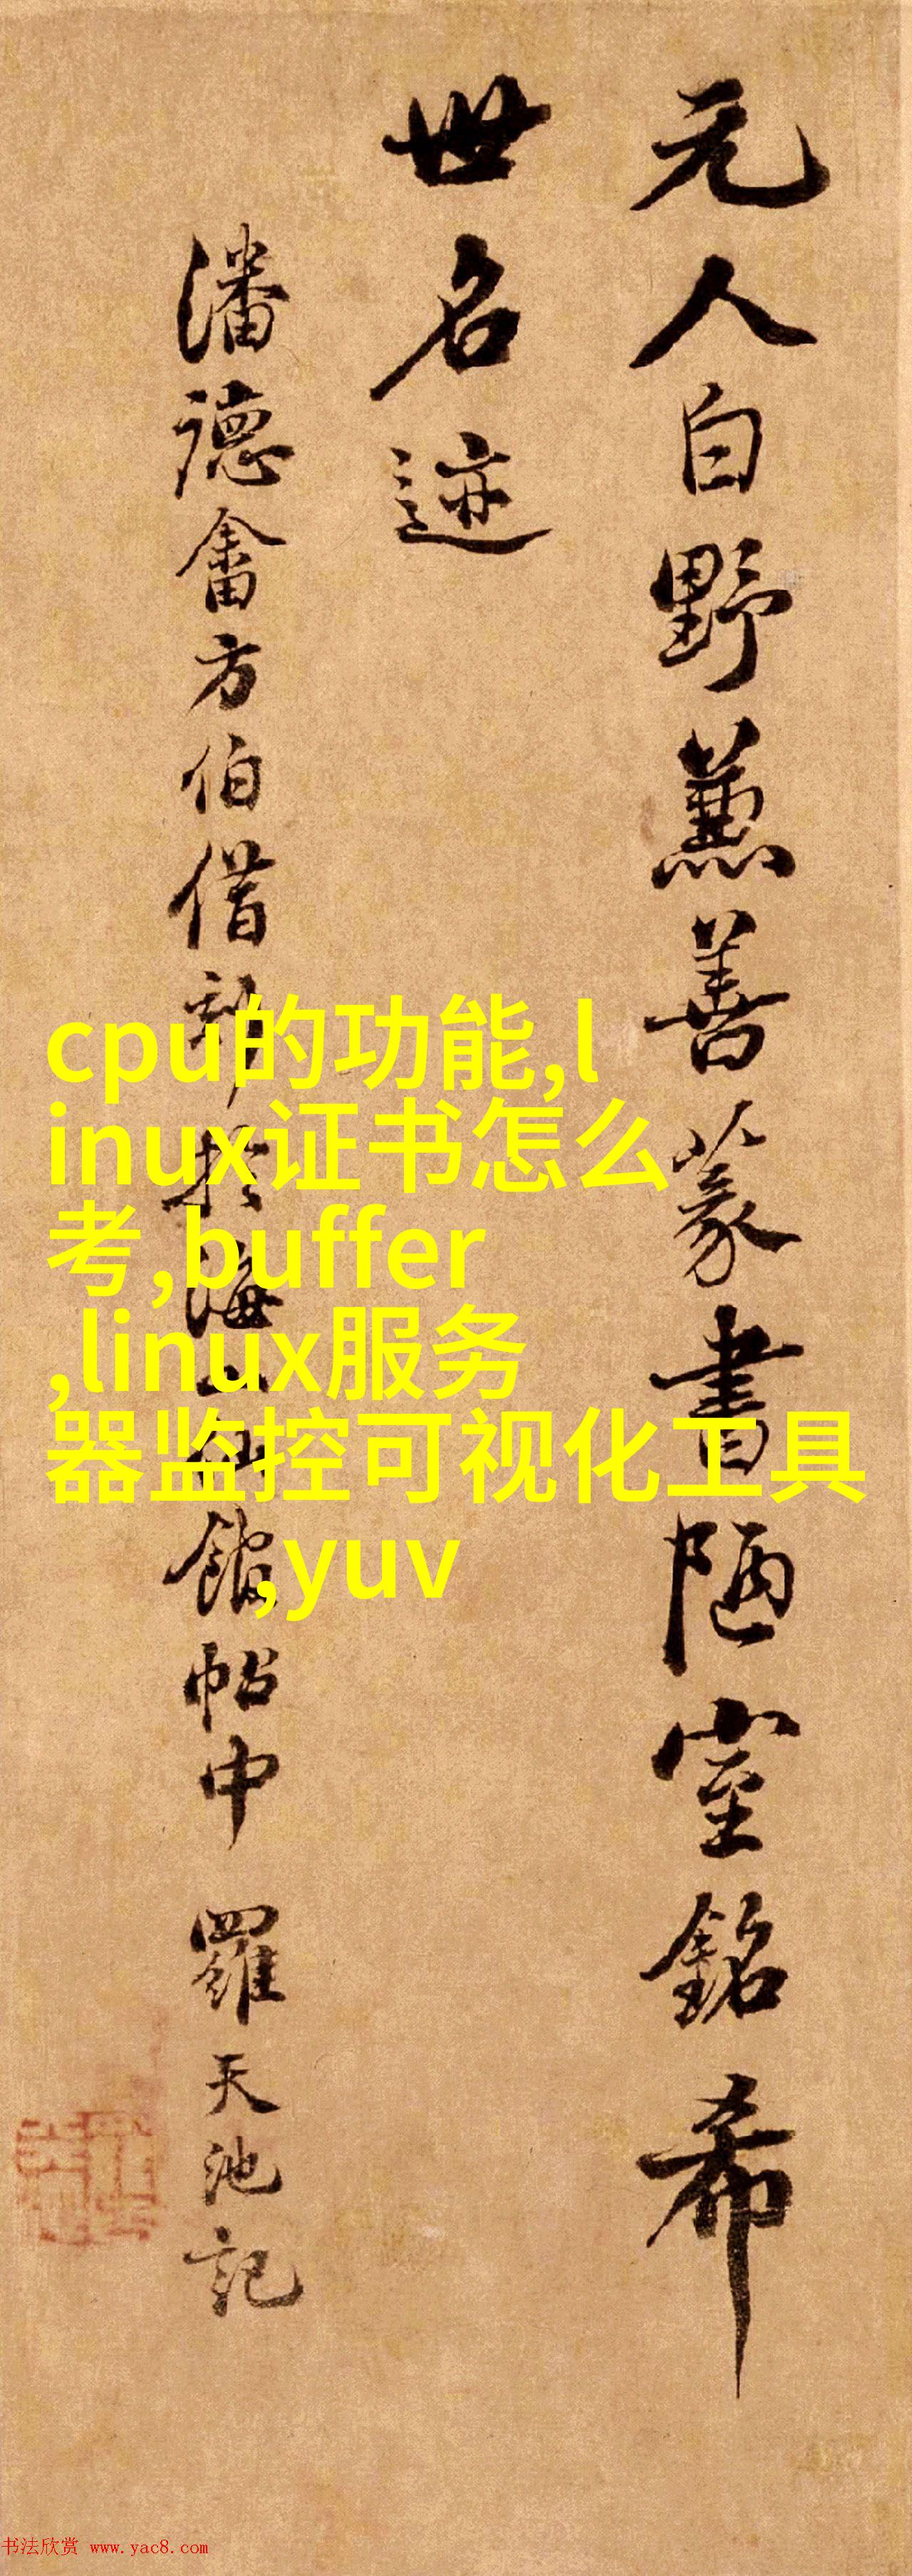 元人白野兼善篆書陋室銘希
世名迹
潘德畬方伯借刻於海山仙館帖中 羅天池記
cpu的功能,l
inux证书怎么
考,buffer
,linux服务
器监控可视化工具
,yuv
书法欣赏 www.yac8.com